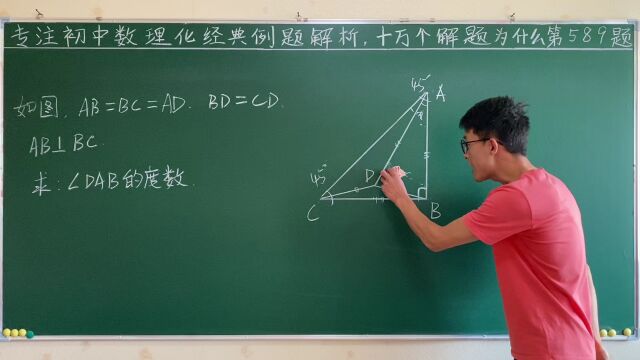 专注初中数理化经典例题解析，十万个解题为什么第589题
如图，AB=BC=AD. BD=CD.
AB⊥BC.
求：∠DAB的度数.
45°
A
?
45°
D
C
B